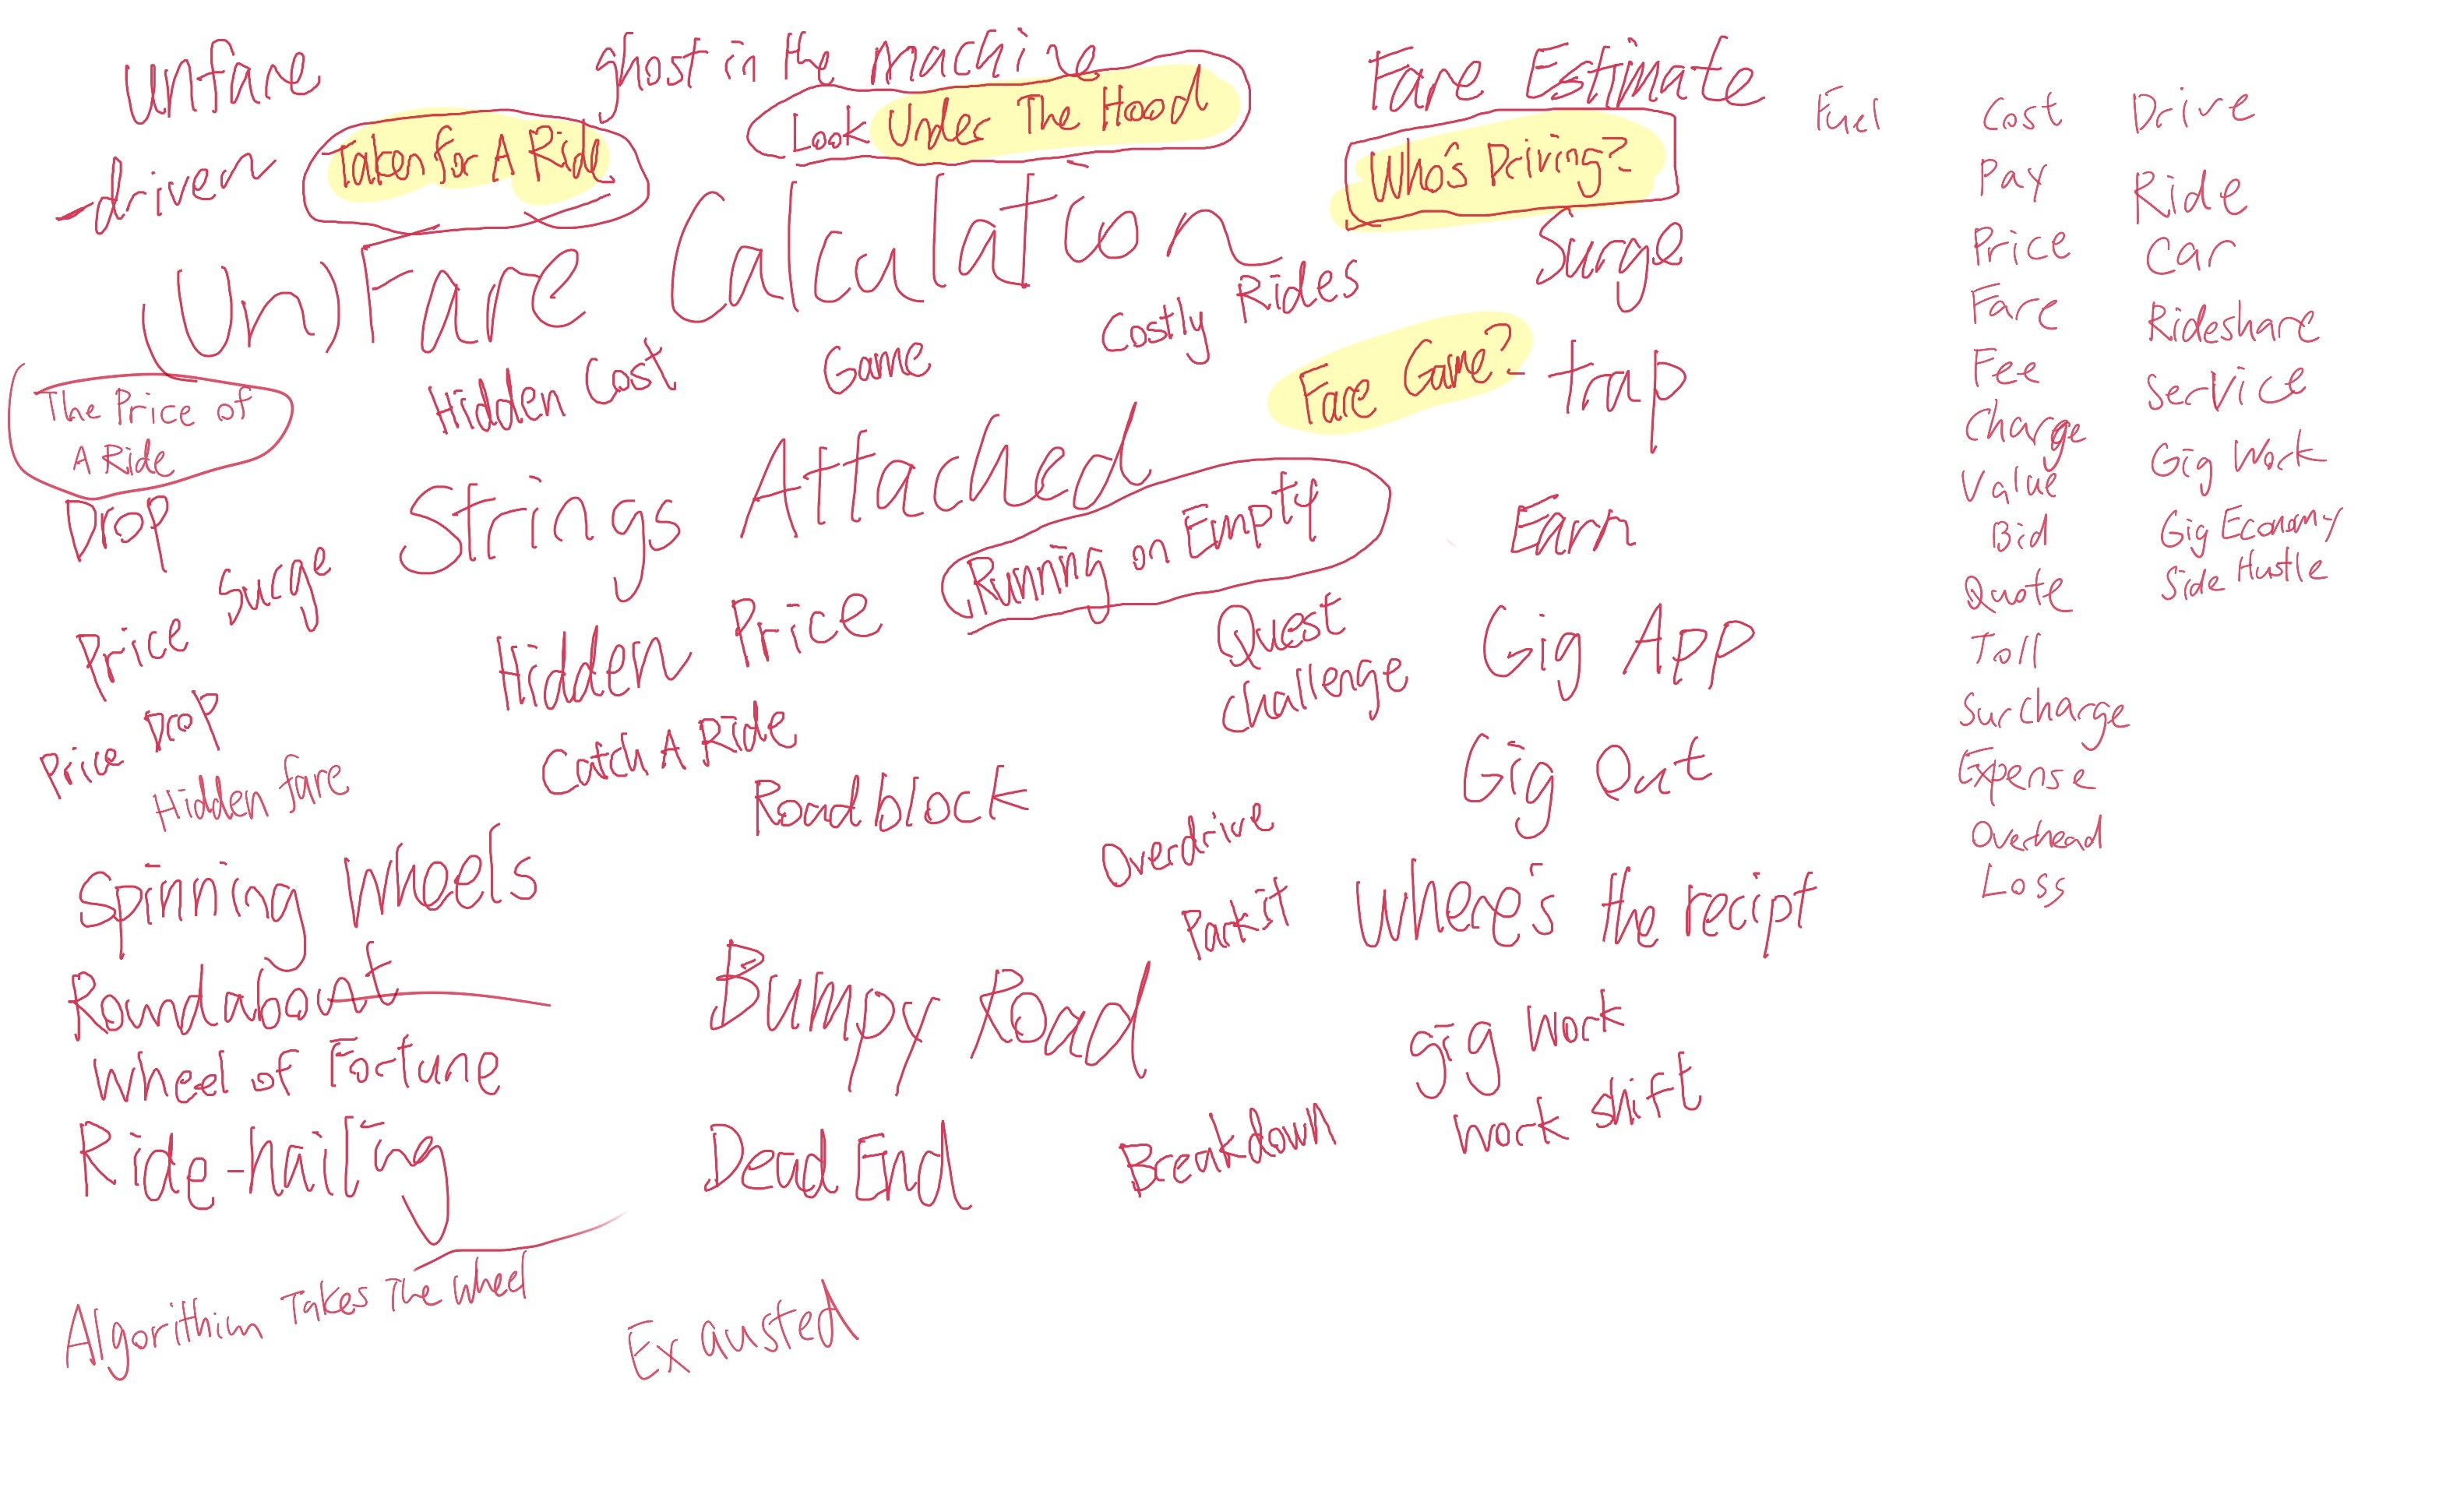 unfare
ghost in the machine
Fare Estimate
-driven
Taken for A Ride
Look Under The Hood
Who's Driving?
(Un)Fare Calculation
Surge
Costly Rides
Hidden Cost
Game
Fare Game?
trap
The Price of
A Ride
Drop
Strings Attached
Running on Empty
Earn
Price Surge
Hidden Price
Quest
challenge
Gig App
Price Drop
Hidden fare
Catch A Ride
Roadblock
Gig Out
Overdrive
Spinning Wheels
Park it
Where's the recipt
Roundabout
Bumpy Road
Wheel of Fortune
gig work
work shift
Ride-hailing
Dead End
Breakdown
Algorithim Takes The Wheel
Exausted
Fuel
Cost
Pay
Price
Fare
Fee
Charge
Value
Bid
Quote
Toll
Surcharge
Expense
Overhead
Loss
Drive
Ride
Car
Rideshare
Service
Gig Work
Gig Economy
Side Hustle